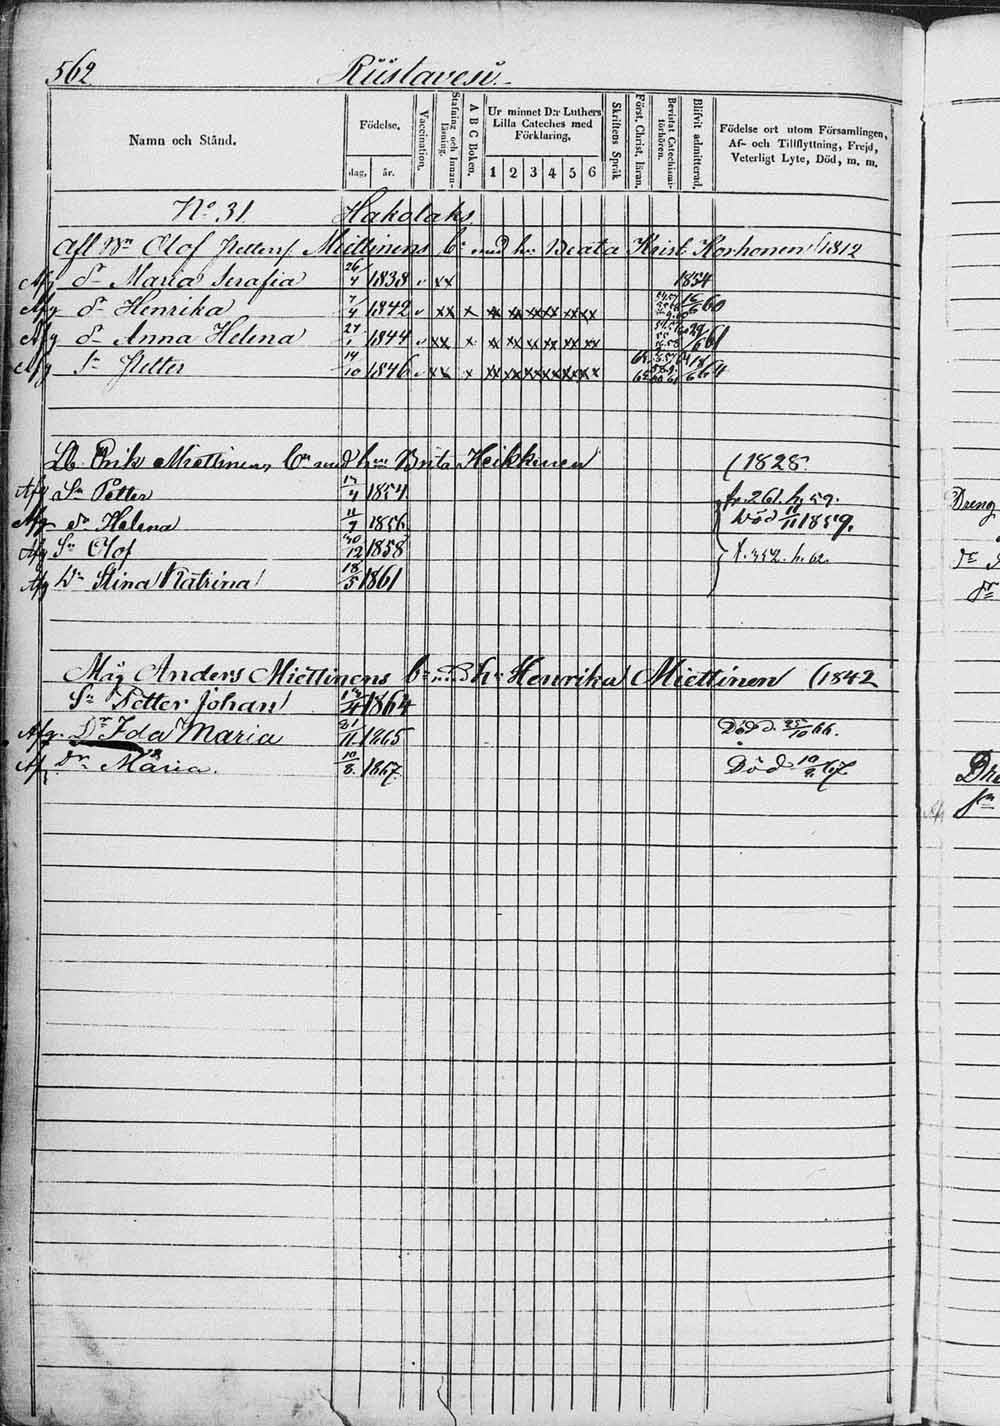 562 Rustavesi.
Namn och Stånd.
Födelse,
dag, år.
Vaccination.
Stafning och Innanläsning.
A B C Boken.
Ur minnet D:r Luthers
Lilla Cateches med
Förklaring,
1 2 3 4 5 6
Skriftens Språk
Först. Christ. läran.
Bevistat Catechismiförhören.
Blifvit admitterad.
Födelse ort utom Församlingen,
Af- och Tillflyttning, Frejd,
Veterligt Lyte, Död, m. m.
No 31. Hakolaks.
Afl Bn Olof Petterss. Miettinens b. med h. Beata Krist. Korhonen (1812
Afg dr Maria Serafia 26/4 1838 v x x 1854
Afg dr Henrika 7/4 1842 v xx x xx xx xx xx xx xx /6 60
Afg dr Anna Helena 27/1 1844 v xx x xx xx xx xx xx xx /6 61
Afg Sn Petter 14/10 1846 v xx x xx xx xx xx xx xx 18/6 64
Lb. Erik Miettinen, bn med hn Brita Heikkinen (1828.
Afg Sn Petter /4 1854. fr. 261. h. 59.
Afg dr Helena 11/9 1856 Död 11/11 1859.
Afg Sn Olof 30/12 1858 t. 352. h. 62.
Afg Dr Stina Katrina 18/5 1861
Måg Anders Miettinens b. med h. Henrika Miettinen (1842
Sn Petter Johan /4 1864
Afg. Dr Ida Maria 21/11 1865 Död d. 25/10 66.
Af Dr Maria. 10/8. 1867. Död 10/9. 67.
Dreng